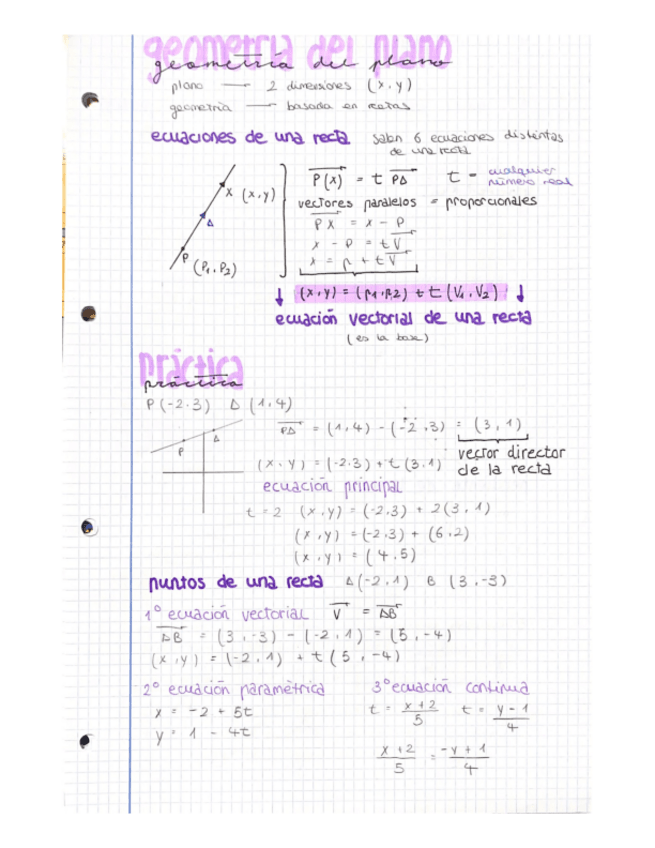 geometría del plano
geometría del plano
plano — 2 dimensiones (x,y)
geometría — basada en rectas
ecuaciones de una recta salen 6 ecuaciones distintas
de una recta
x (x,y)
A
P (P1, P2)
P(x) = t PA t = cualquier
número real
vectores paralelos = proporcionales
PX = x - P
x - P = t V
x = p + t V
↓ (x,y) = (p1,p2) + t (V1,V2) ↓
ecuación vectorial de una recta
(es la base)
práctica
práctica
P(-2,3) A (1,4)
P A
PA = (1,4) - (-2,3) = (3,1)
vector director
de la recta
(x,y) = (-2,3) + t (3,1)
ecuación principal
t = 2 (x,y) = (-2,3) + 2(3,1)
(x,y) = (-2,3) + (6,2)
(x,y) = (4,5)
puntos de una recta A(-2,1) B (3,-3)
1º ecuación vectorial V = AB
AB = (3,-3) - (-2,1) = (5,-4)
(x,y) = (-2,1) + t (5,-4)
2º ecuación paramétrica
x = -2 + 5t
y = 1 - 4t
3º ecuación continua
t = x+2/5 t = y-1/4
x+2/5 = -y+1/4